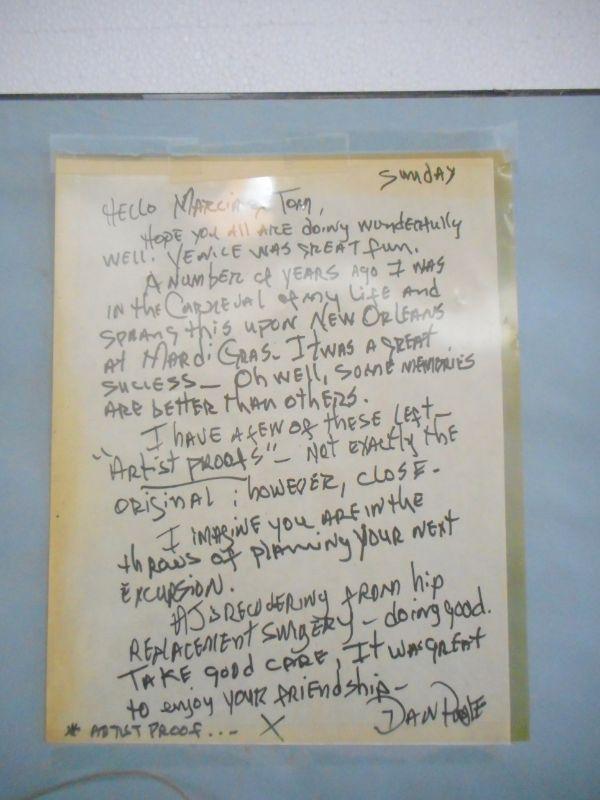 Sunday
Hello Marcia & Tom,
Hope you all are doing wonderfully
well. Venice was great fun.
A number of years ago I was
in the Carneval of my life and
sprang this upon New Orleans
at Mardi Gras. It was a great
success— Oh well, some memories
are better than others.
I have a few of these left—
"Artist proofs"— Not exactly the
original ; however, close.
I imagine you are in the
throws of planning your next
excursion.
AJ is recovering from hip
replacement surgery— doing good.
Take good care, It was great
to enjoy your friendship—
* Artist proof... X Dan